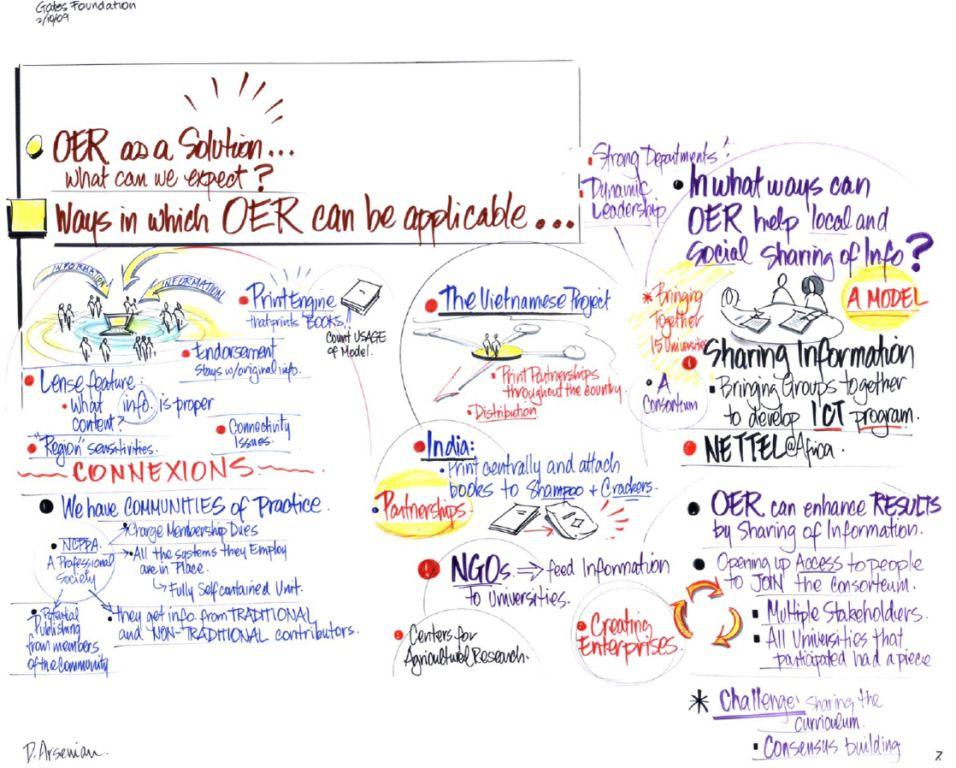 Gates Foundation
2/19/09
OER as a Solution...
What can we expect?
Ways in which OER can be applicable...
INFORMATION
INFORMATION
Print Engine
that prints "BOOKS."
Count USAGE
of Model.
Endorsement
Stays w/original info.
Lense feature:
What info. is proper
content?
Connectivity
Issues.
"Region" sensitivities.
CONNEXIONS
We have COMMUNITIES of Practice.
NCPPA.
A Professional
Society
Charge Membership Dues
All the systems they Employ
are in Place.
Fully Self contained Unit.
Potential
Publishing
from members
of the community
they get info. from TRADITIONAL
and NON-TRADITIONAL contributors.
The Vietnamese Project
Print Partnerships
throughout the country.
Distribution
India:
Print centrally and attach
books to Shampoo + Crackers.
Partnerships
NGOs. feed Information
to Universities.
Centers for
Agricultural Research.
Creating
Enterprises.
Strong Departments!
Dynamic
Leadership
In what ways can
OER help local and
Social Sharing of Info?
A MODEL
* Bringing
Together
15 Universities
A
Consortium
Sharing Information
Bringing Groups together
to develop ICT program.
NETTEL@Africa.
OER can enhance RESULTS
by Sharing of Information.
Opening up Access to people
to JOIN the consorteum.
Multiple Stakeholders.
All Universities that
participated had a piece
* Challenge: Sharing the
curriculum.
Consensus building
D. Arsenian.
7.